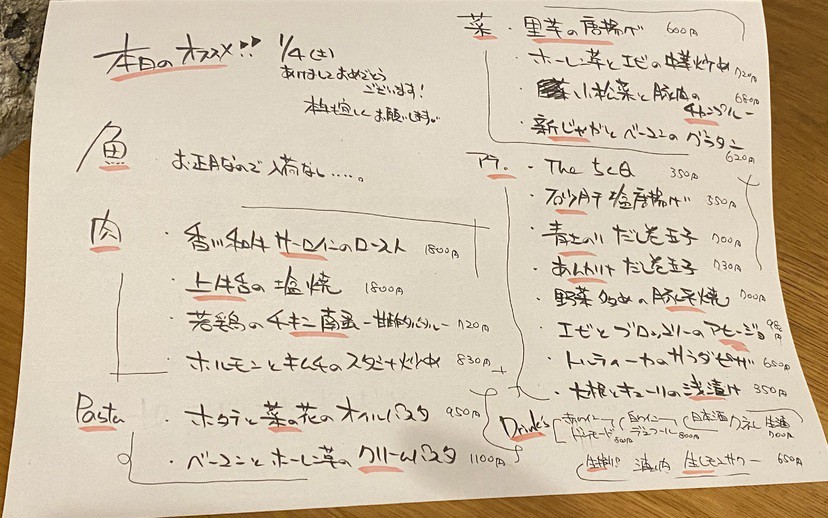 本日のオススメ!!
1/4(土)
あけましておめでとう
ございます!
本年も宜しくお願いします。
魚
お正月なので入荷なし……。
肉
・香川和牛サーロインのロースト 1800円
・上牛舌の塩焼 1800円
・若鶏のチキン南蛮 -甘酢タルタル- 720円
・ホルモンとキムチのスタミナ炒め 830円
Pasta
・ホタテと菜の花のオイルパスタ 950円
・ベーコンとホーレン草のクリームパスタ 1100円
菜
・里芋の唐揚げ 600円
・ホーレン草とエビの中華炒め 720円
・小松菜と豚肉の
チャンプルー 680円
・新じゃがとベーコンのグラタン
620円
アテ。
・The ちくQ 350円
・砂肝塩唐揚げ 350円
・青のりだし巻玉子 700円
・あんかけだし巻玉子 730円
・野菜多めの豚平焼 700円
・エビとブロッコリーのアヒージョ 980円
・トルティーヤのサラダピザ 650円
・大根とキューリの浅漬け 350円
Drink's
赤ワイン
800円
白ワイン
800円
日本酒
700円
生レモンサワー 650円